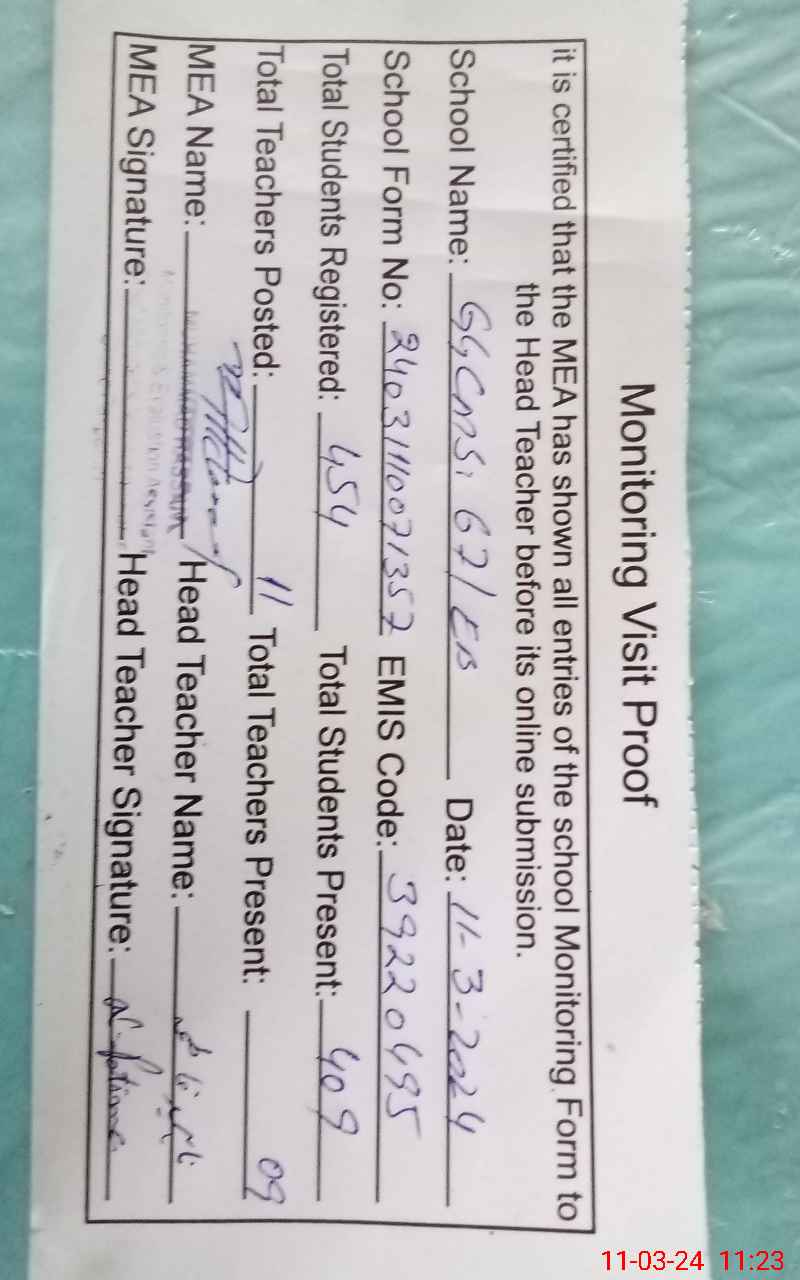 Monitoring Visit Proof
it is certified that the MEA has shown all entries of the school Monitoring Form to
the Head Teacher before its online submission.
School Name: GGCMSi 67/EB Date: 11-3-2024
School Form No: 24031110071357 EMIS Code: 39220495
Total Students Registered: 454 Total Students Present: 409
Total Teachers Posted: 11 Total Teachers Present: 09
MEA Name: Head Teacher Name:
Monitoring & Evaluation Assistant
MEA Signature: Head Teacher Signature:
11-03-24 11:23